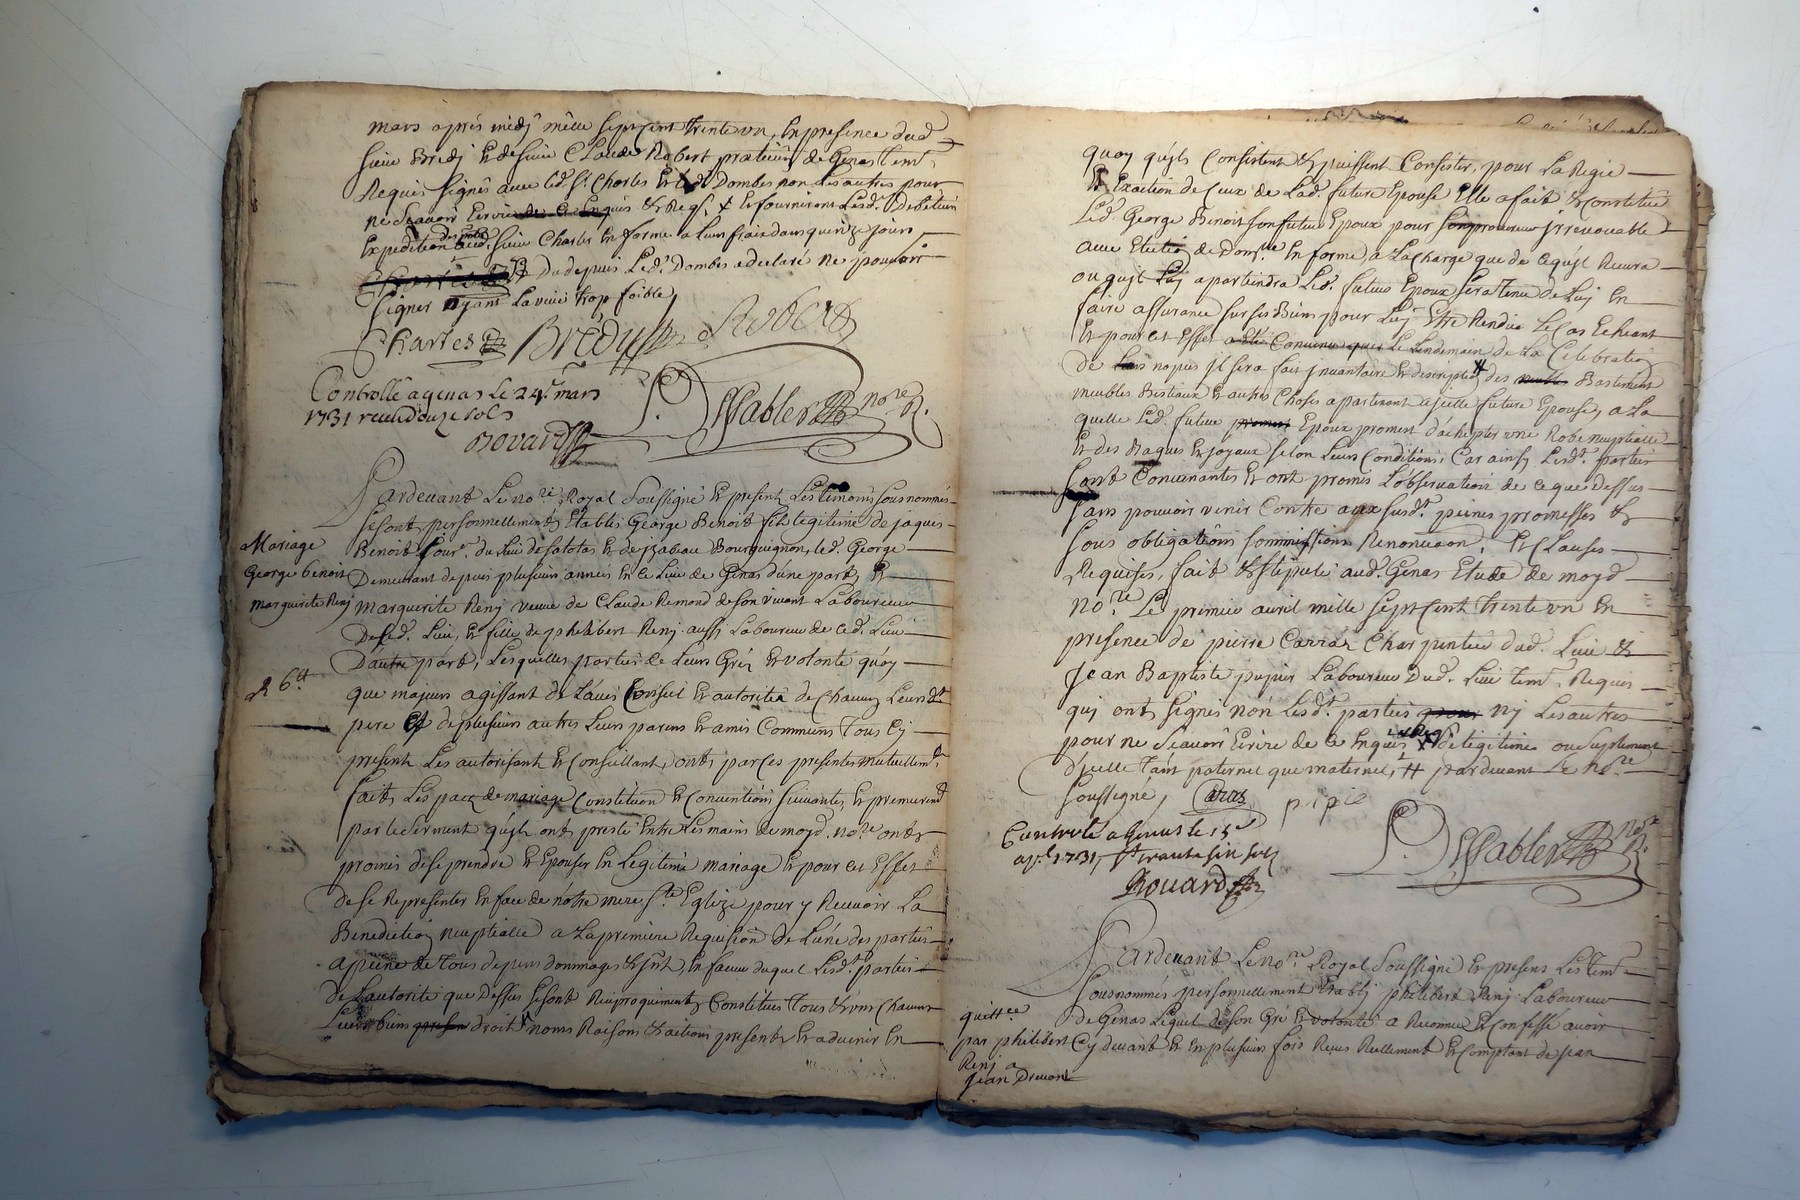 mars après midj mille sept cent trente un, En presence dud.
sieur Bredj Et de sieur Claude Robert praticien de Genas tem.
Requis signés auec led. Sr. Charles Et led. Dombes non les autres pour
ne sçauoir Ecrire de ce Enquis & Req.
Expedition aud. sieur Charles En forme a leurs frais dans quinze jours
Du depuis Led. Dombes a declaré ne pouuoir
signer ayant la vüe trop foible,
Charles Bredy Robert
Controllé a genas le 24e. mars
1731 receu douze sols
Bovard
P. Nore R.
Pardeuant Le nore. Royal soussigné Et present Les temoins sousnommés
se sont personnellement Etablis George Benoit fils legitime de jaques
Benoit du lieu de satolas Et de jzabeau Bourguignon, led. George
Demeurant depuis plusieurs années En ce Lieu de Genas d'une part, Et
marguerite Renj veuue de Claude Remond de son viuant Laboureur
Dud. Lieu, Et fille de philibert Renj aussi Laboureur de ced. Lieu
D'autre part, Lesquelles parties de Leurs Gréz Et volonté quoy
que majeurs agissant de L'auis Conseil Et autorité de Chacun Leursdt.
pere Et de plusieurs autres Leurs parens Et amis Communs tous Cy
present Les autorisant Et Conseillant, ont par ces presentes mutuellemt.
fait Les pacz de mariage Constitution Et Conuentions suiuantes, Et premieremt.
par le serment qu'jls ont presté Entre Les mains de moyd. nore. ont
promis de se prendre Et Epouser En Legitime mariage Et pour cet Effet
de se Representer En face de nôtre mere Ste. Eglize pour y Receuoir La
Benediction nuptialle a La premiere Requisition de L'une des parties
a peine de tous depens dommages & jnt., En faueur duquel Lesdt. parties
de L'autorité que Dessus se sont Reciproquement Constitués tous & uns Chacuns
Leurs biens droits noms Raisons & actions present & aduenir En
Mariage
George benoit
marguerite Renj
R 6tt
quoy qu'jls Consistent & puissent Consister, pour La Regie
Et Exaction de Ceux de Lad. future Epouse Elle a fait & Constitué
Led. George Benoit son futur Epoux pour son procureur jrreuocable
auec Election de Domle. En forme, a La charge que de ce qu'jl Receura
ou qu'jl Luj apartiendra Led. futur Epoux sera tenu de Luj En
faire assurance sur ses Biens pour Luj Etre Rendüe Le Cas Echeant
Et pour cet Effet Le Lendemain de La Celebration
de nopces jl sera fait jnuantaire Et description des Bastiment
meubles Bestiaux & autres Choses apartenant a jcelle future Epouse, a La
quelle Led. futur Epoux promet d'achepter une Robe nuptialle
Et des Bagues Et joyaux selon Leurs Conditions, Car ainsy Lesdt. parties
sont Conuenantes Et ont promis L'obseruation de ce que dessus
sans pouuoir venir Contre aux susdt. peines promesses &
sous obligations soumissions Renonciaon. Et Clauses
Requises, fait & stipulé aud. Genas Etude de moyd.
Nore. Le premier auril mille sept cent trente un En
presence de pierre Carraz Charpentier dud. Lieu &
Jean Baptiste pupier Laboureur Dud. Lieu tem. Requis
quj ont signés non Lesdt. parties nj Les autres
pour ne sçauoir Ecrire de ce Enquis & Req. de legitime ou suplement
d'jcelle tant paternel que maternel, # pardeuant Le nore.
soussigné,
Controlé a Genas le 15e
apl. 1731, Rt trante six sols
Bouard
P. Nore R.
Pardeuant Le nore. Royal soussigné Et presens Les tem.
sousnommés personnellement Etablj philibert Renj Laboureur
de Genas Lequel de son Gré Et volonté a Reconnu Et Confessé auoir
Cy deuant Et En plusieurs fois Receu Reellement Et Comptant de jean
quittce
par philibert
Renj a
jean Dreuont